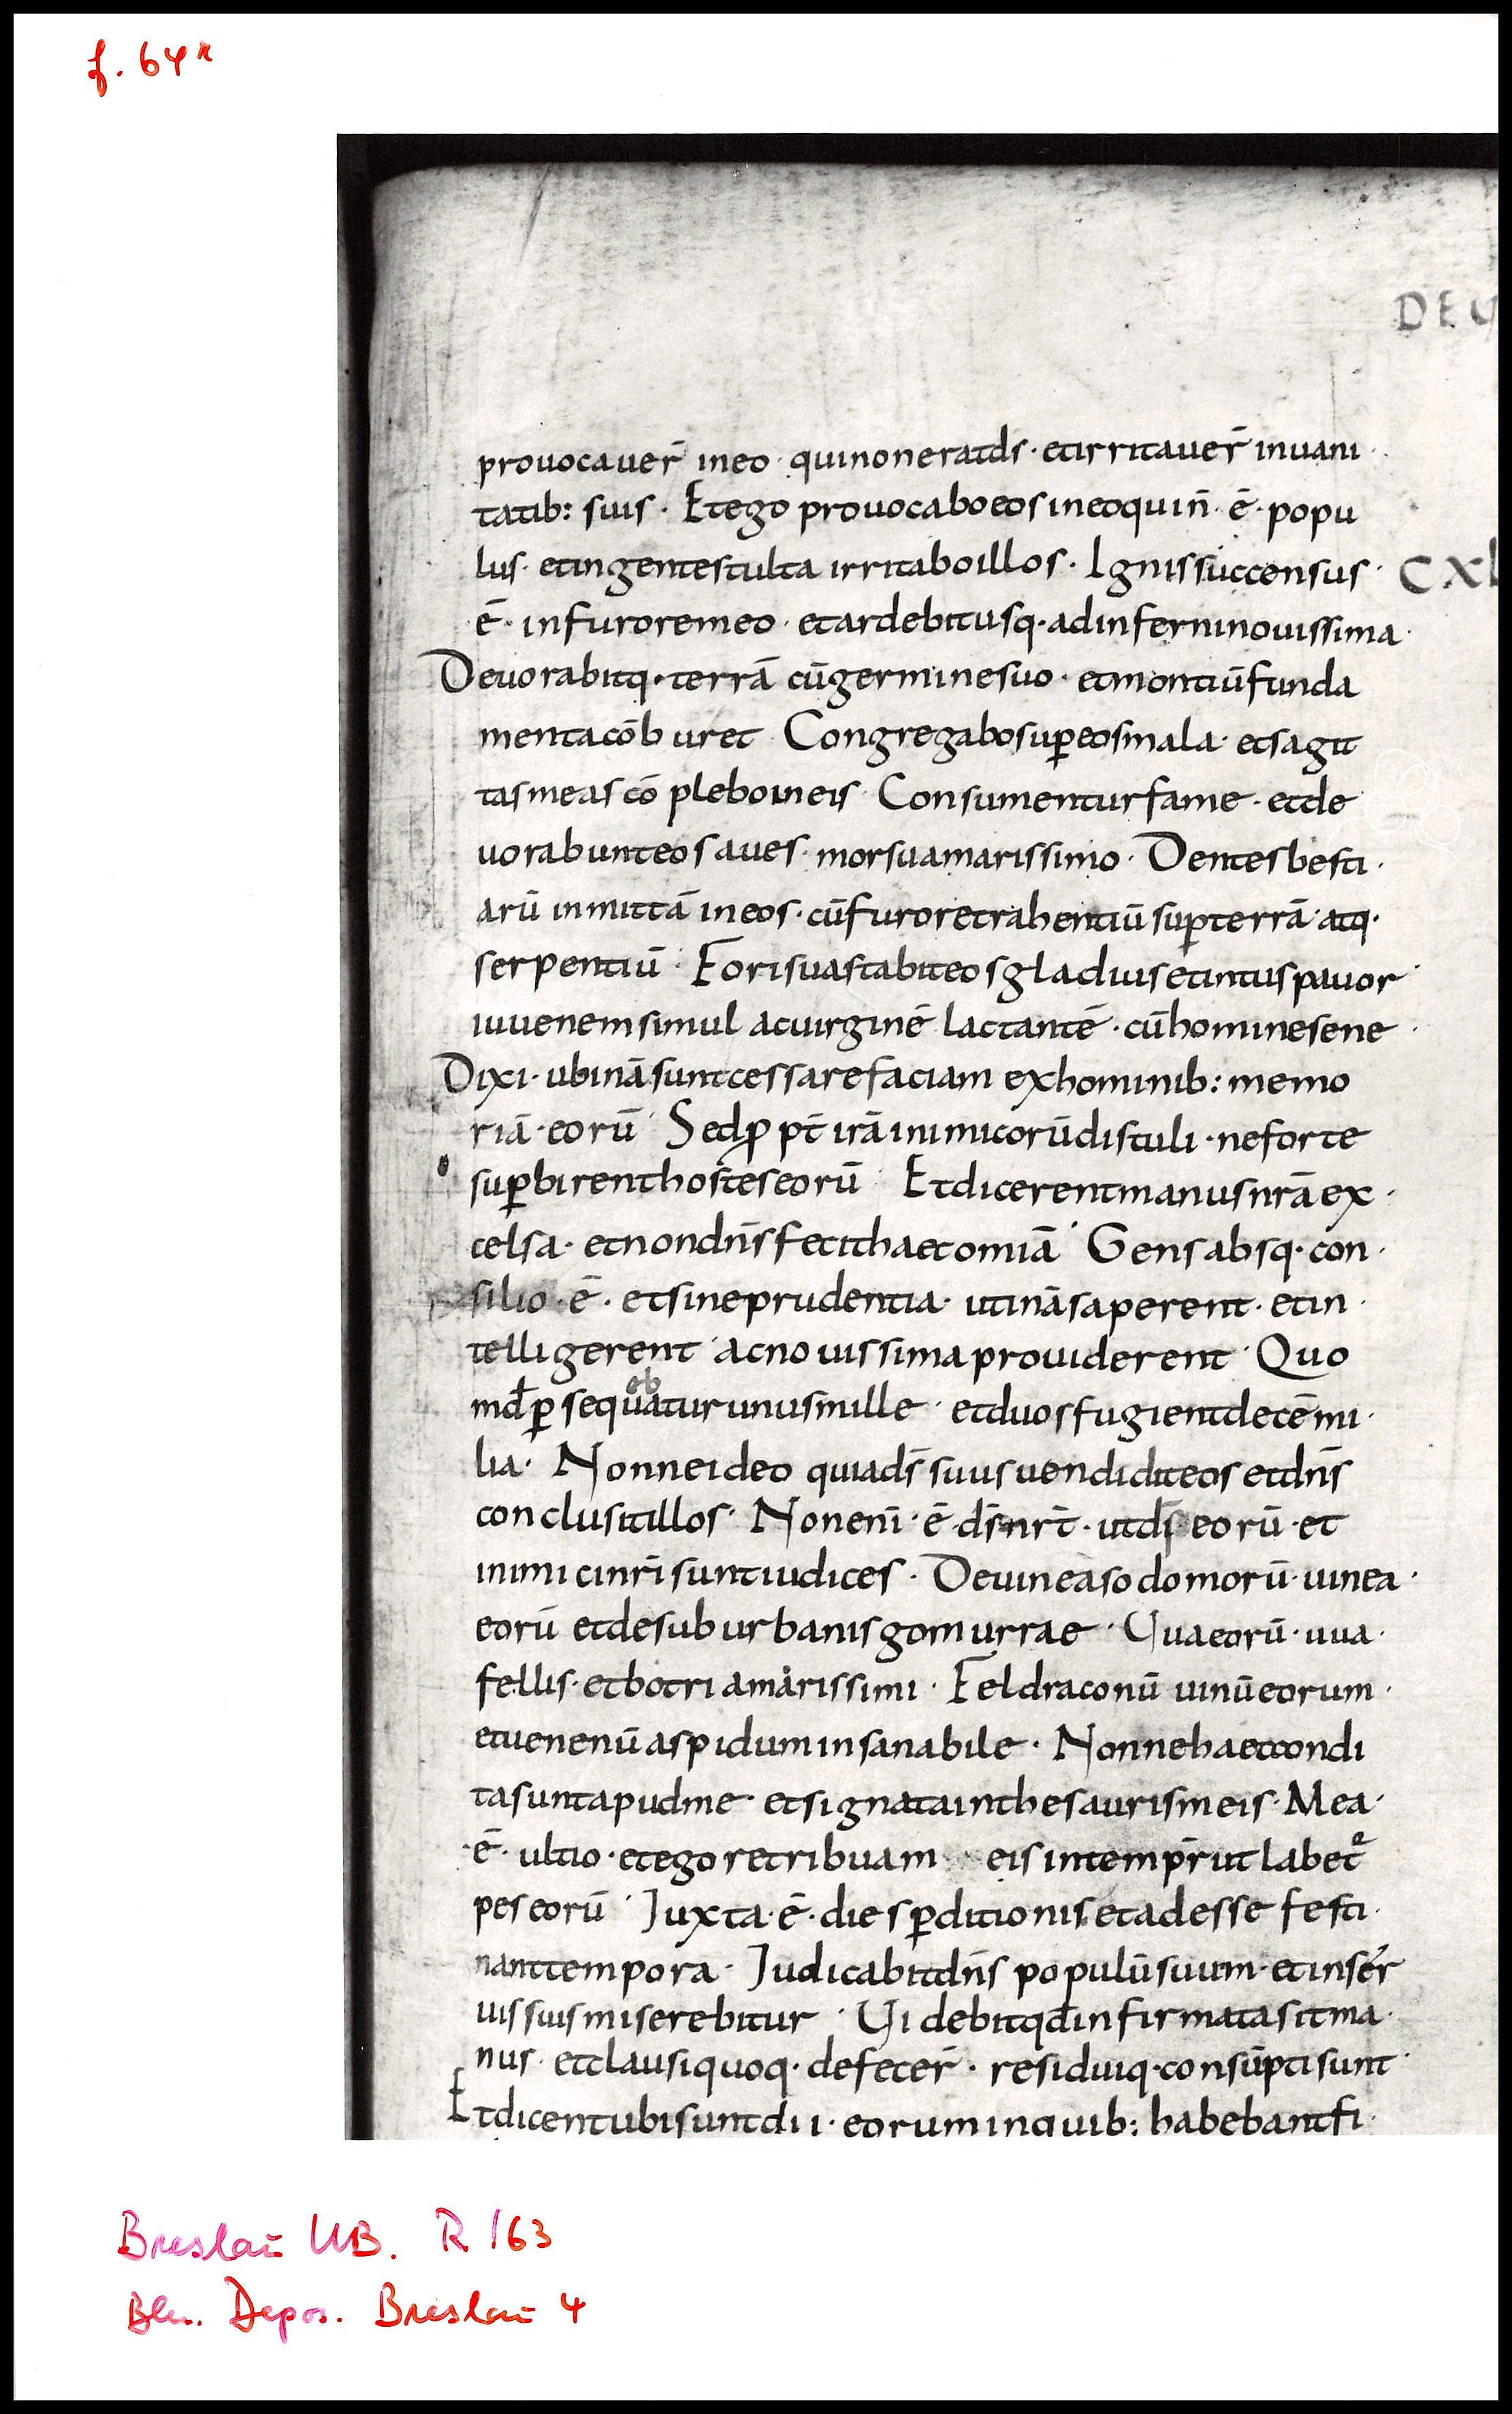 f. 64r
DEU
prouocauer̄ ineo · quinoneratd̄s · etirritauer̄ inuani
tatib: suis · Etego prouocaboeos ineoquin̄ · ē · popu
lus · etingentestulta irritaboillos · Ignissuccensus ·
CXL
ē · infuroremeo · etardebitusq· adinferninouissima ·
Deuorabitq· terrā cūgerminesuo · etmontiūfunda
mentacōburet Congregabosuꝑeosmala · etsagit
tasmeas cōpleboineis Consumenturfame · etde
uorabunteosaues · morsuamarissimo · Dentesbesti ·
arū inmittā ineos · cūfuroretrahentiū suꝑterrā · atq·
serpentiū · Forisuastabiteosgladiusetintuspauor ·
iuuenemsimul acuirginē lactantē · cūhominesene ·
Dixi · ubinā suntcessarefaciam exhominib: memo
riā · eorū Sedꝓpt̄ irāinimicorūdistuli · neforte
suꝑbirenthosteseorū Etdicerentmanusnr̄aex ·
celsa · etnondn̄sfecithaecomīa Gensabsq· con ·
silio · ē · etsineprudentia · utināsaperent · etin ·
telligerent · acnouissimaprouiderent · Quo
ob
md̄ꝑsequaturunusmille · etduosfugientdecēmi ·
lia · Nonneideo quiad̄s suusuendiditeos etdn̄s
conclusitillos · Nonenī · ē · d̄snr̄t · utd̄s eorū · et
inimicinr̄i suntiudices · Deuineasodomorū · uinea ·
eorū etdesuburbanisgomurrae · Uuaeorū · uua ·
fellis · etbotriamarissimi · Feldraconū uinūeorum ·
etuenenūaspiduminsanabile · Nonnehaeccondi
tasuntapudme · etsignatainthesaurismeis · Mea ·
ē · ultio · etegoretribuam eis intemp̄r utlabet̄
peseorū Juxta · ē · diesꝑditionis · etadesse festi ·
nanttempora · Judicabitdn̄s populūsuum · etinser
uissuismiserebitur · Uidebitqd̄infirmatasitma ·
nus · etclausiquoq· defecer̄ · residuiq· consūptisunt ·
Etdicentubisuntdii · eoruminquib: habebantfi ·
Breslau UB. R 163
Bln. Depos. Breslau 4